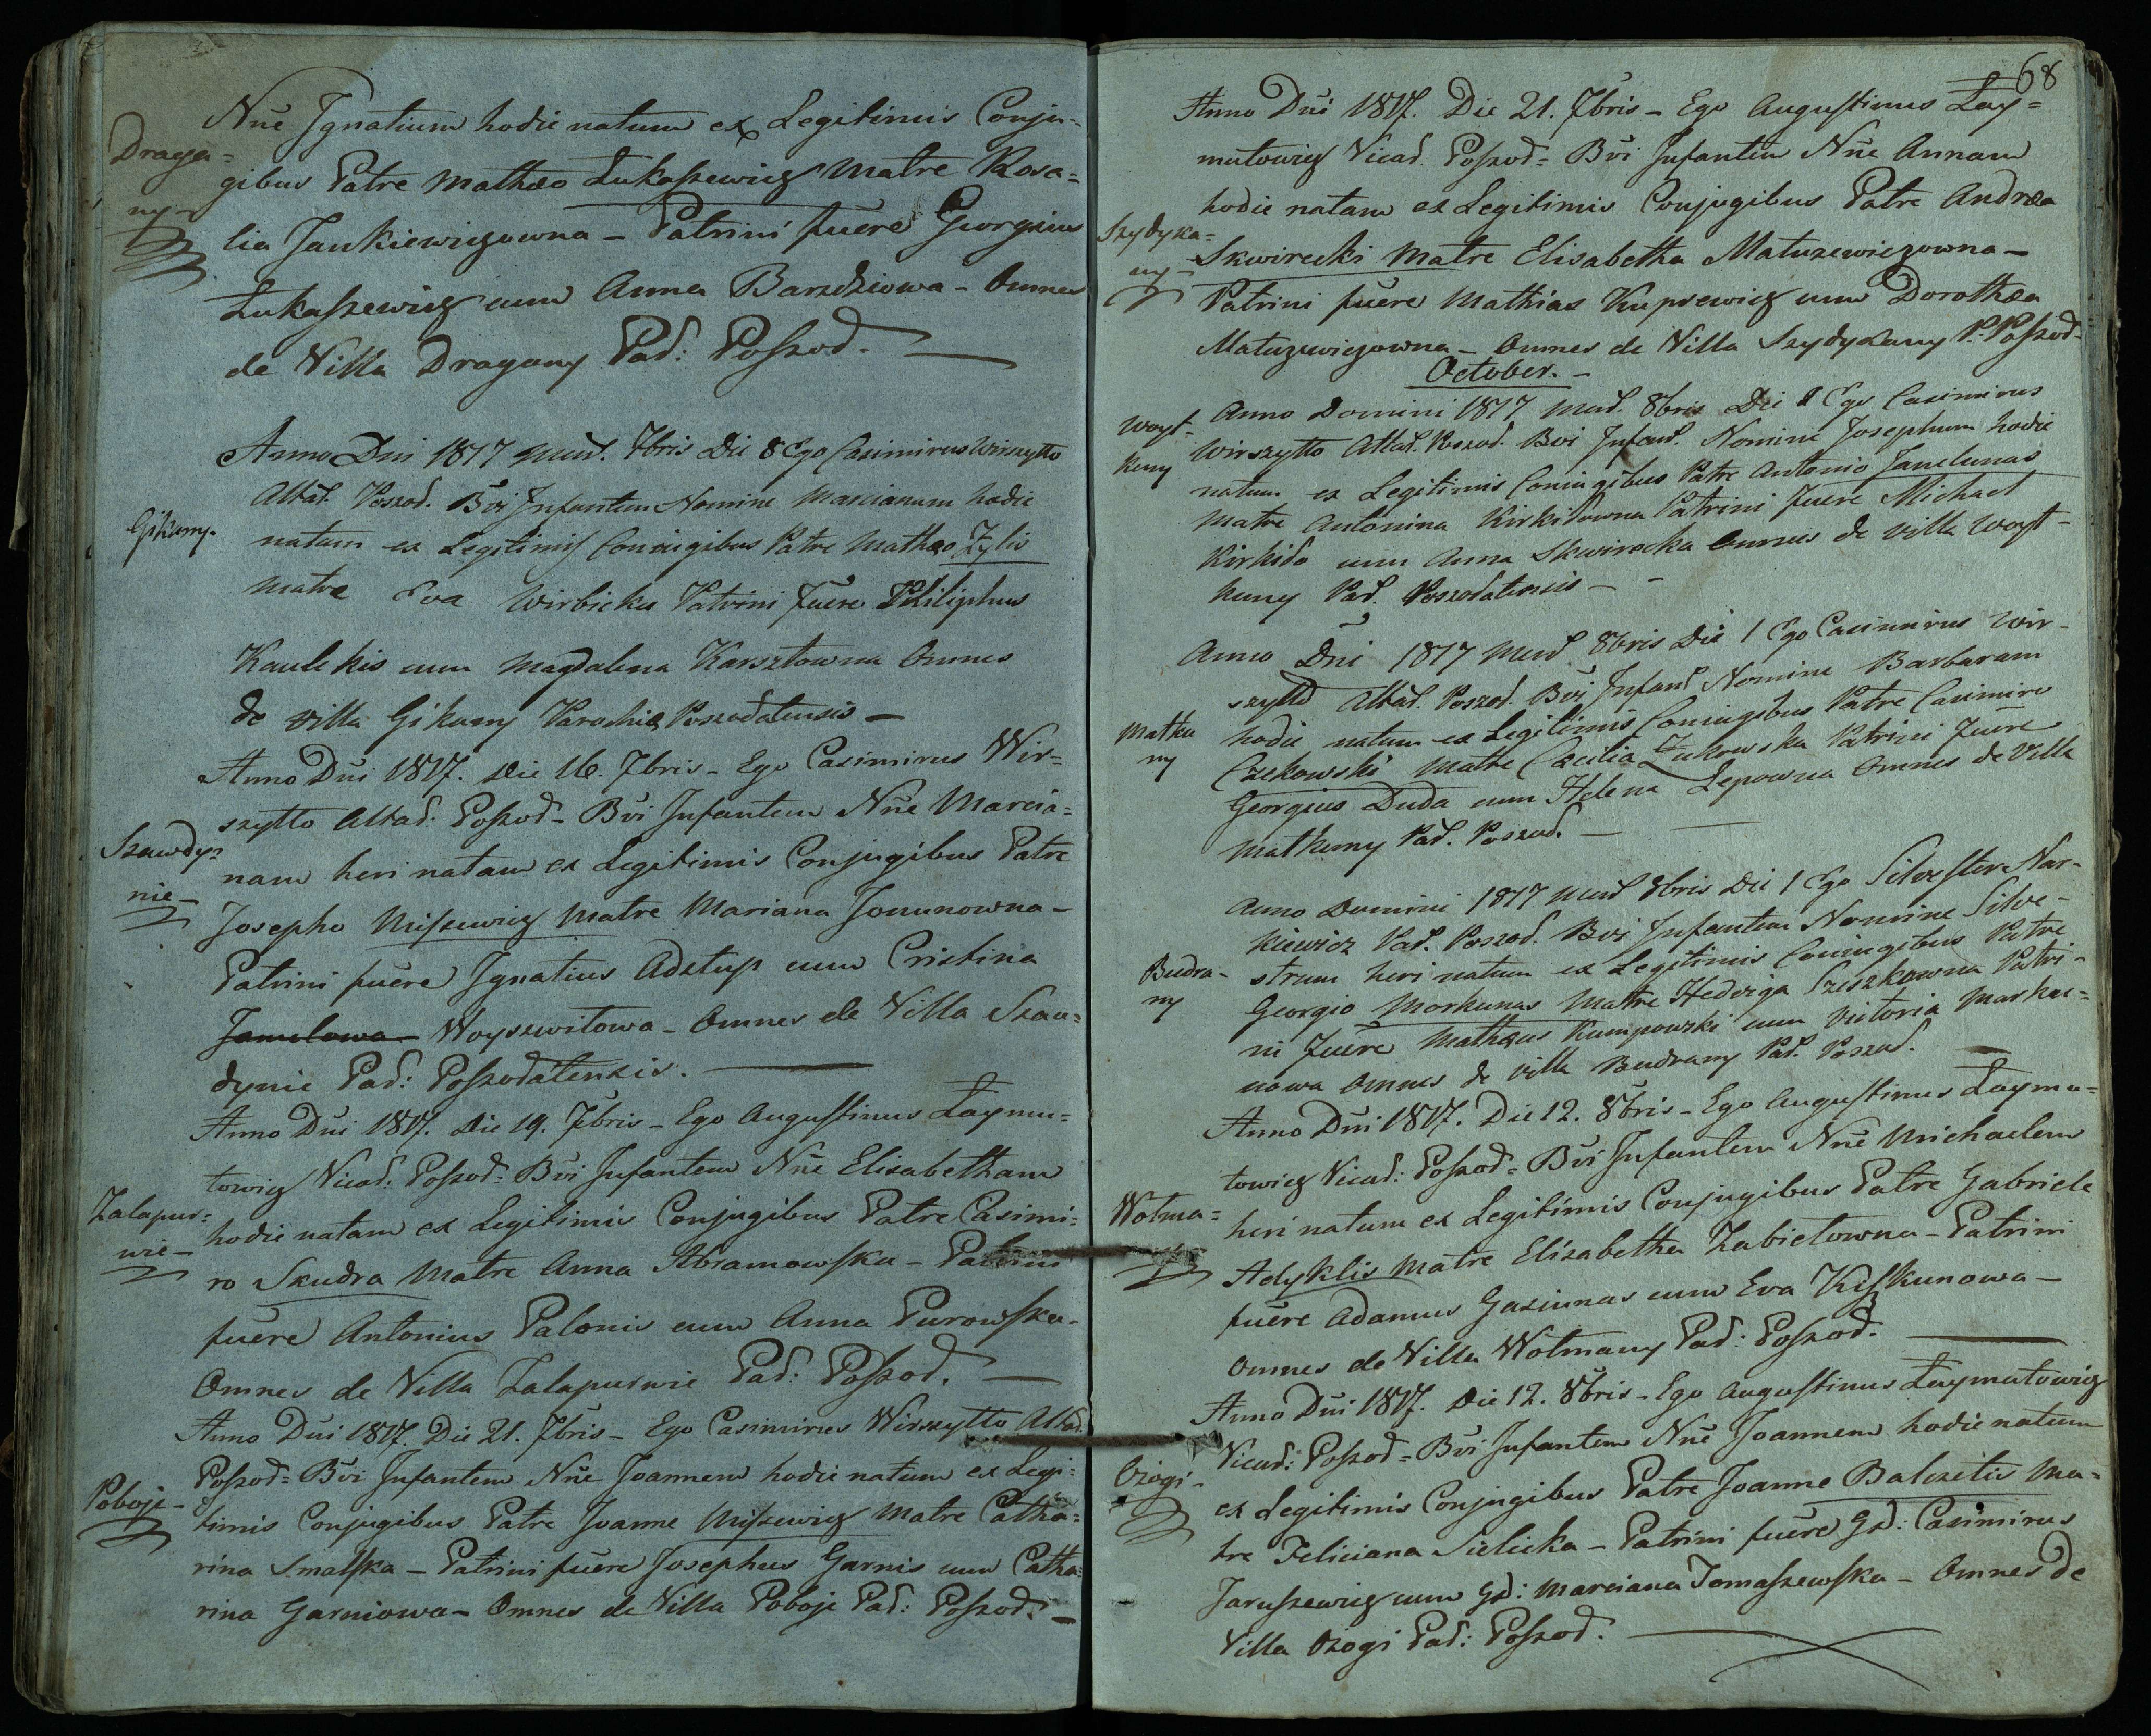 Draga=
ny-
Nne Ignatium hodie natum ex Legitimis Conju-
gibus Patre Mathæo Łukaszewicz Matre Rosa=
lia Jankiewiczowna - Patrini fuere Georgius
Łukaszewicz cum Anna Barsdziowa - Omnes
de Villa Dragany Pad: Poszod.
Gikany.
Anno Dni 1817 Mens. 7bris Die 8 Ego Casimirus Wirszytto
Altad. Poszod. Bvi Infantem Nomine Marcianum hodie
natum ex Legitimis Coniugibus Patre Mathæo Zylis
Matre Eva Wirbicka Patrini fuere Philiphus
Kaulekis cum Magdalena Karsztowna Omnes
de villa Gikany Parochiæ Poszodatensis -
Szawdy=
nie-
Anno Dni 1817. Die 16. 7bris - Ego Casimirus Wir=
szytto Altad: Poszod- Bvi Infantem Nne Marcia=
nam heri natam ex Legitimis Conjugibus Patre
Josepho Miszewicz Matre Mariana Jomunowna -
Patrini fuere Ignatius Adstup cum Cristina
Janulowa- Woyszwitowa - Omnes de Villa Szau=
dynie Pad: Poszodatensis.
Zalapur=
wie-
Anno Dni 1817. Die 19. 7bris - Ego Augustinus Łaymu=
towicz Vicad: Poszod= Bvi Infantem Nne Elisabetham
hodie natam ex Legitimis Conjugibus Patre Casimi=
ro Skudra Matre Anna Abramowska - Patrini
fuere Antonius Palonis cum Anna Purowska-
Omnes de Villa Zalapurwie Pad: Poszod. -
Poboje-
Anno Dni 1817. Die 21. 7bris - Ego Casimirus Wirszytto Altad.
Poszod= Bvi Infantem Nne Joannem hodie natum ex Legi=
timis Conjugibus Patre Joanne Miszewicz Matre Catha=
rina Smalska - Patrini fuere Josephus Garnis cum Catha=
rina Garniowa - Omnes de Villa Poboje Pad: Poszod: -
68
Szydyka=
ny-
Anno Dni 1817. Die 21. 7bris - Ego Augustinus Łay=
mutowicz Vicad. Poszod= Bvi Infantem Nne Annam
hodie natam ex Legitimis Conjugibus Patre Andræa
Skwirecki Matre Elisabetha Matuzewiczowna -
Patrini fuere Mathias Kupsewicz cum Dorothæa
Matuzewiczowna - Omnes de Villa Szydykany P. Poszod-
October. -
Woyt-
kuny
Anno Domini 1817 Mens. 8bris Die 1 Ego Casimirus
Wirszytto Altad. Poszod. Bvi Infant. Nomine Josephum hodie
natum ex Legitimis Coniugibus Patre Antonio Janelunas
Matre Antonina Kirkiłowna Patrini fuere Michael
Kirkiło cum Anna Skwirecka Omnes de villa Woyt-
kuny Pad. Poszodatensis -
Matku
ny
Anno Dni 1817 Mens. 8bris Die 1 Ego Casimirus Wir-
szytto Altad. Poszod. Bvi Infant Nomine Barbaram
hodie natam ex Legitimis Coniugibus Patre Casimiro
Czekowski Matre Cæcilia Zukowska Patrini fuere
Georgius Duda cum Helena Lepowna Omnes de Villa
Matkuny Pad. Poszod.
Budra-
ny
Anno Domini 1817 Mens 8bris Die 1 Ego Silvester Nar-
kiewicz Pad. Poszod. Bvi Infantem Nomine Silve-
strum heri natum ex Legitimis Coniugibus Patre
Georgio Morkunas Matre Hedviga Szeszkowna Patri-
ni fuere Mathæus Kumpowski cum Victoria Marku=
nowa Omnes de villa Budrany Pad. Poszod.
Wołma=
Anno Dni 1817. Die 12. 8bris - Ego Augustinus Łaymu=
towicz Vicad: Poszod= Bvi Infantem Nne Michaelem
heri natum ex Legitimis Conjugibus Patre Gabriele
Adyklis Matre Elisabetha Zabiełowna - Patrini
fuere Adamus Gasiunas cum Eva Kiszkunowa -
Omnes de Villa Wołmany Pad: Poszod.
Ozogi-
Anno Dni 1817. Die 12. 8bris - Ego Augustinus Łaymutowicz
Vicad: Poszod= Bvi Infantem Nne Joannem hodie natum
ex Legitimis Conjugibus Patre Joanne Balszetis Ma=
tre Feliciana Sielicka - Patrini fuere Gd: Casimirus
Jaruszewicz cum Gd: Marciana Tomaszewska - Omnes de
Villa Ozogi Pad: Poszod.